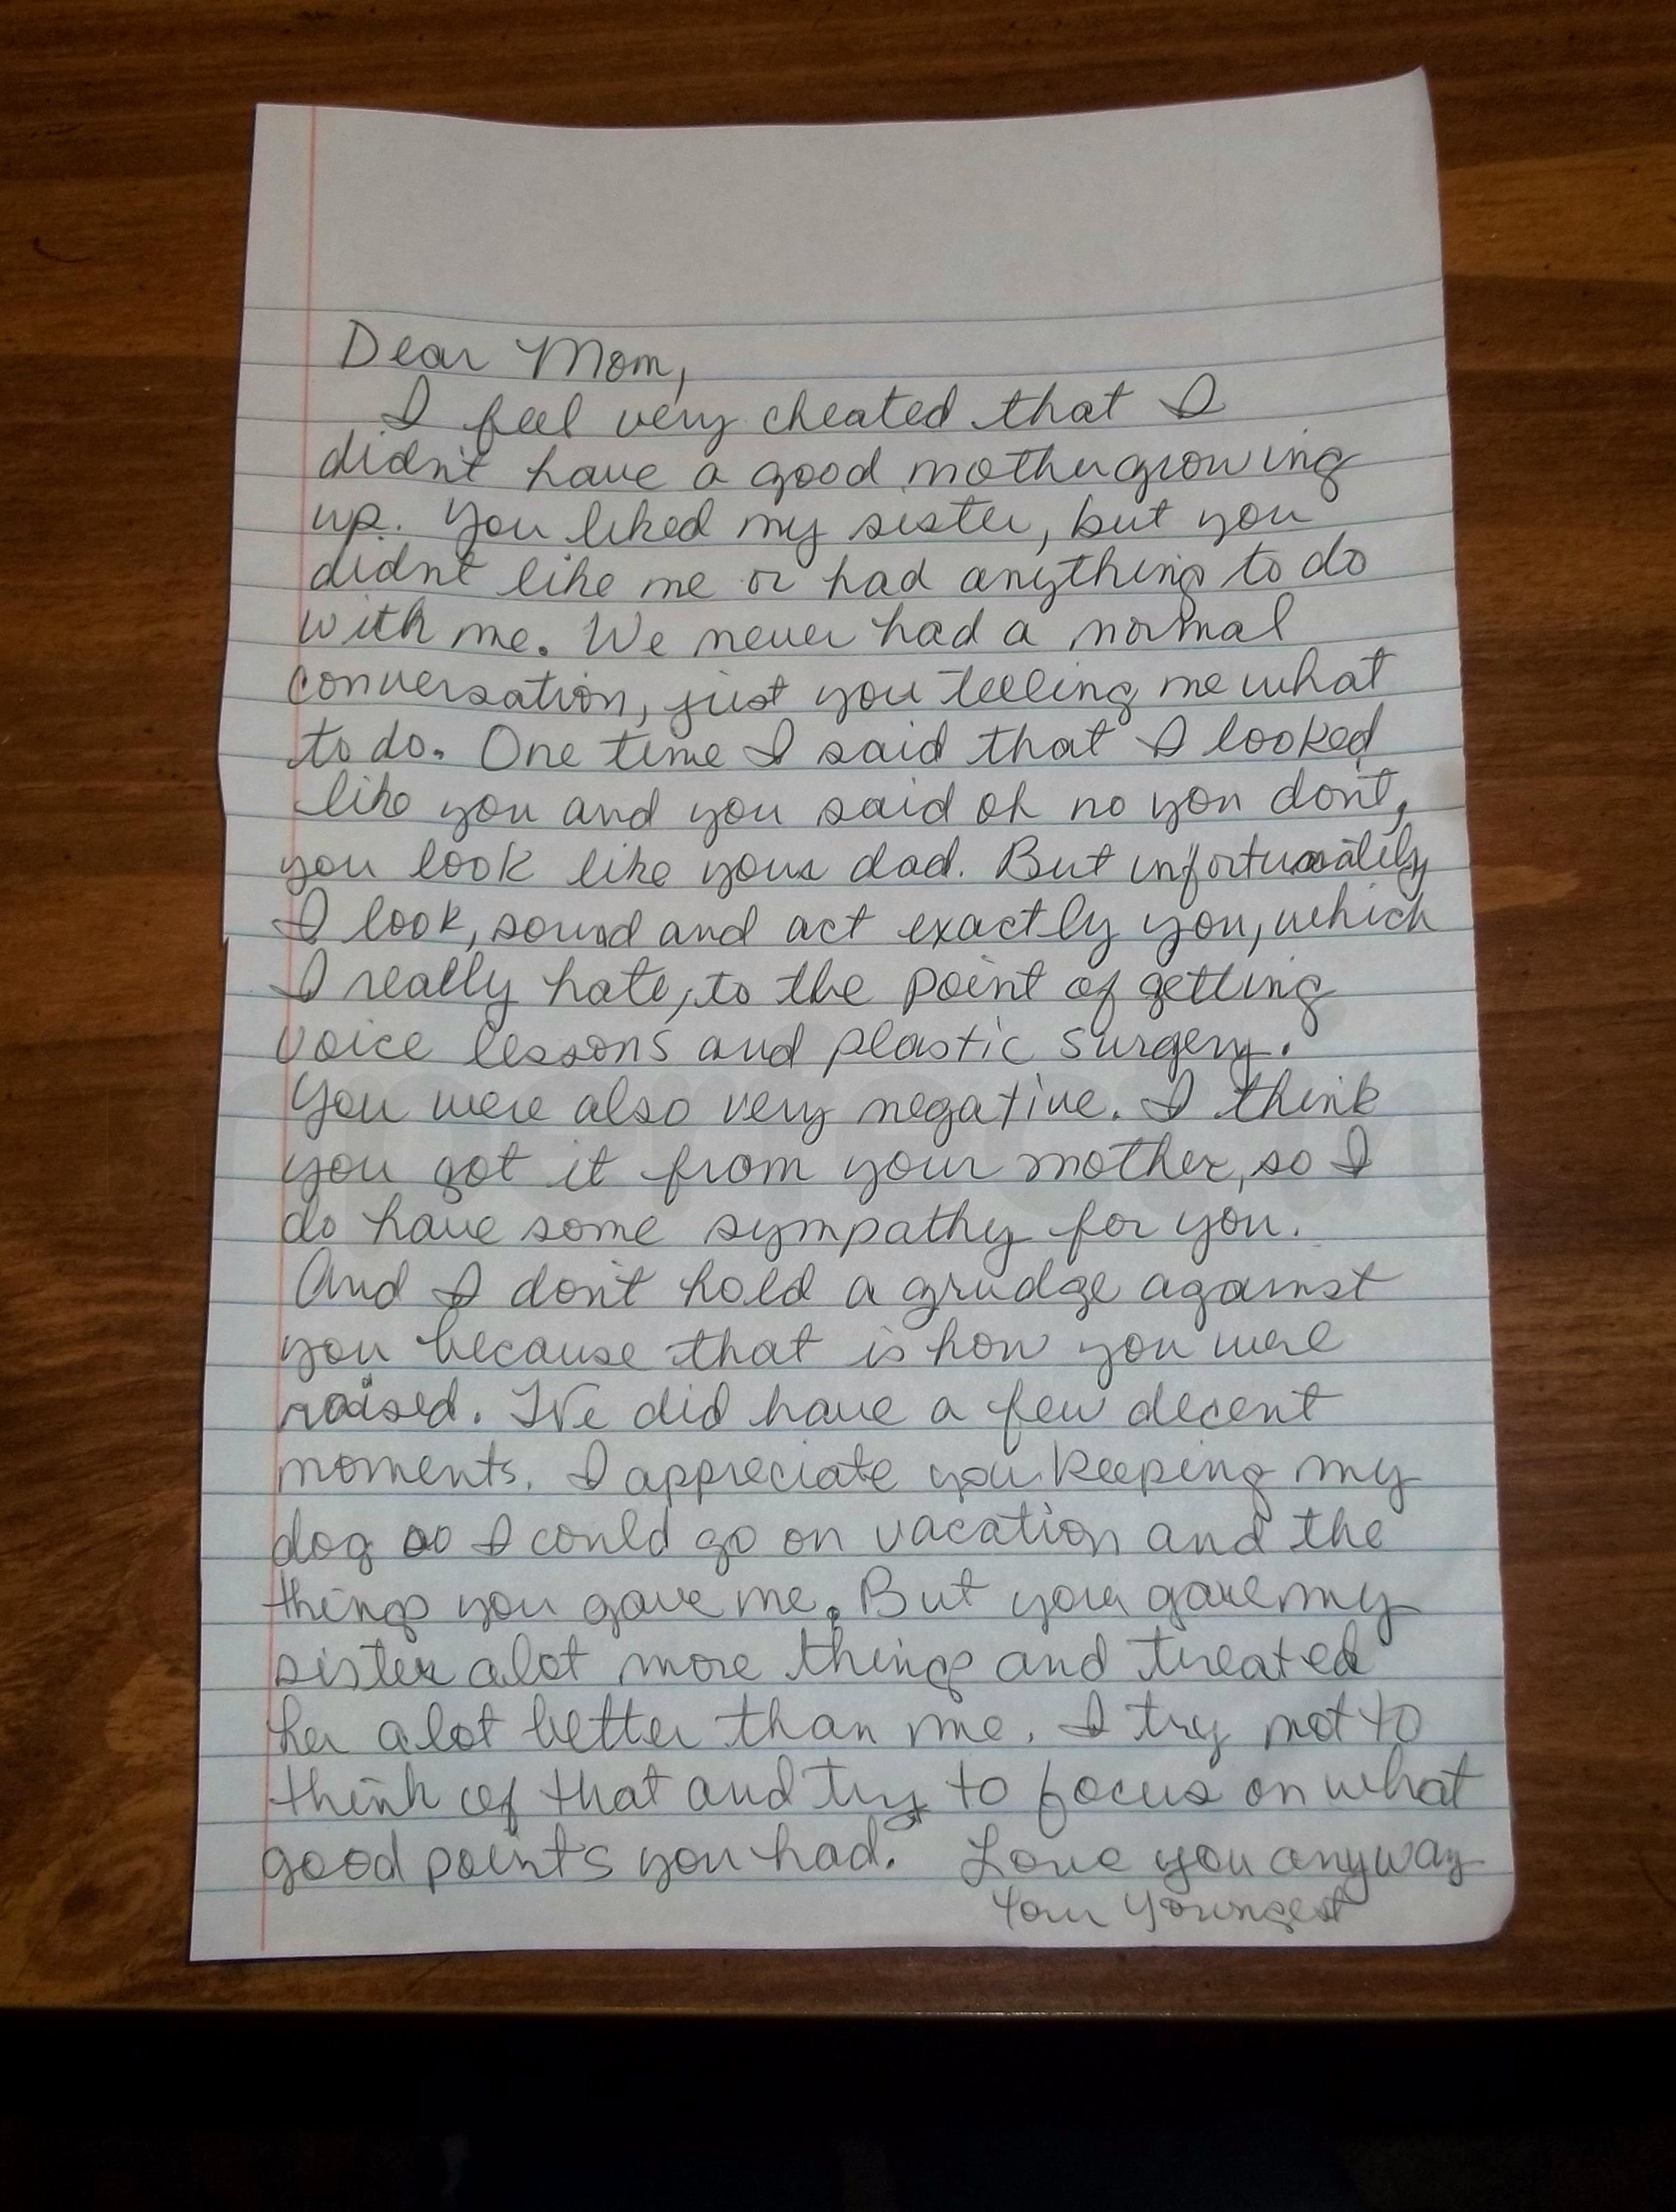 Dear Mom,
I feel very cheated that I
didn't have a good mother growing
up. You liked my sister, but you
didnt like me or had anything to do
with me. We never had a normal
conversation, just you telling me what
to do. One time I said that I looked
like you and you said oh no you dont,
you look like your dad. But unfortunatily
I look, sound and act exactly you, which
I really hate, to the point of getting
voice lessons and plastic surgery.
You were also very negative. I think
you got it from your mother, so I
do have some sympathy for you.
And I don't hold a grudge against
you because that is how you were
raised. We did have a few decent
moments. I appreciate you keeping my
dog so I could go on vacation and the
things you gave me. But you gave my
sister alot more things and treated
her alot better than me. I try not to
think of that and try to focus on what
good points you had. Love you anyway
Your Youngest